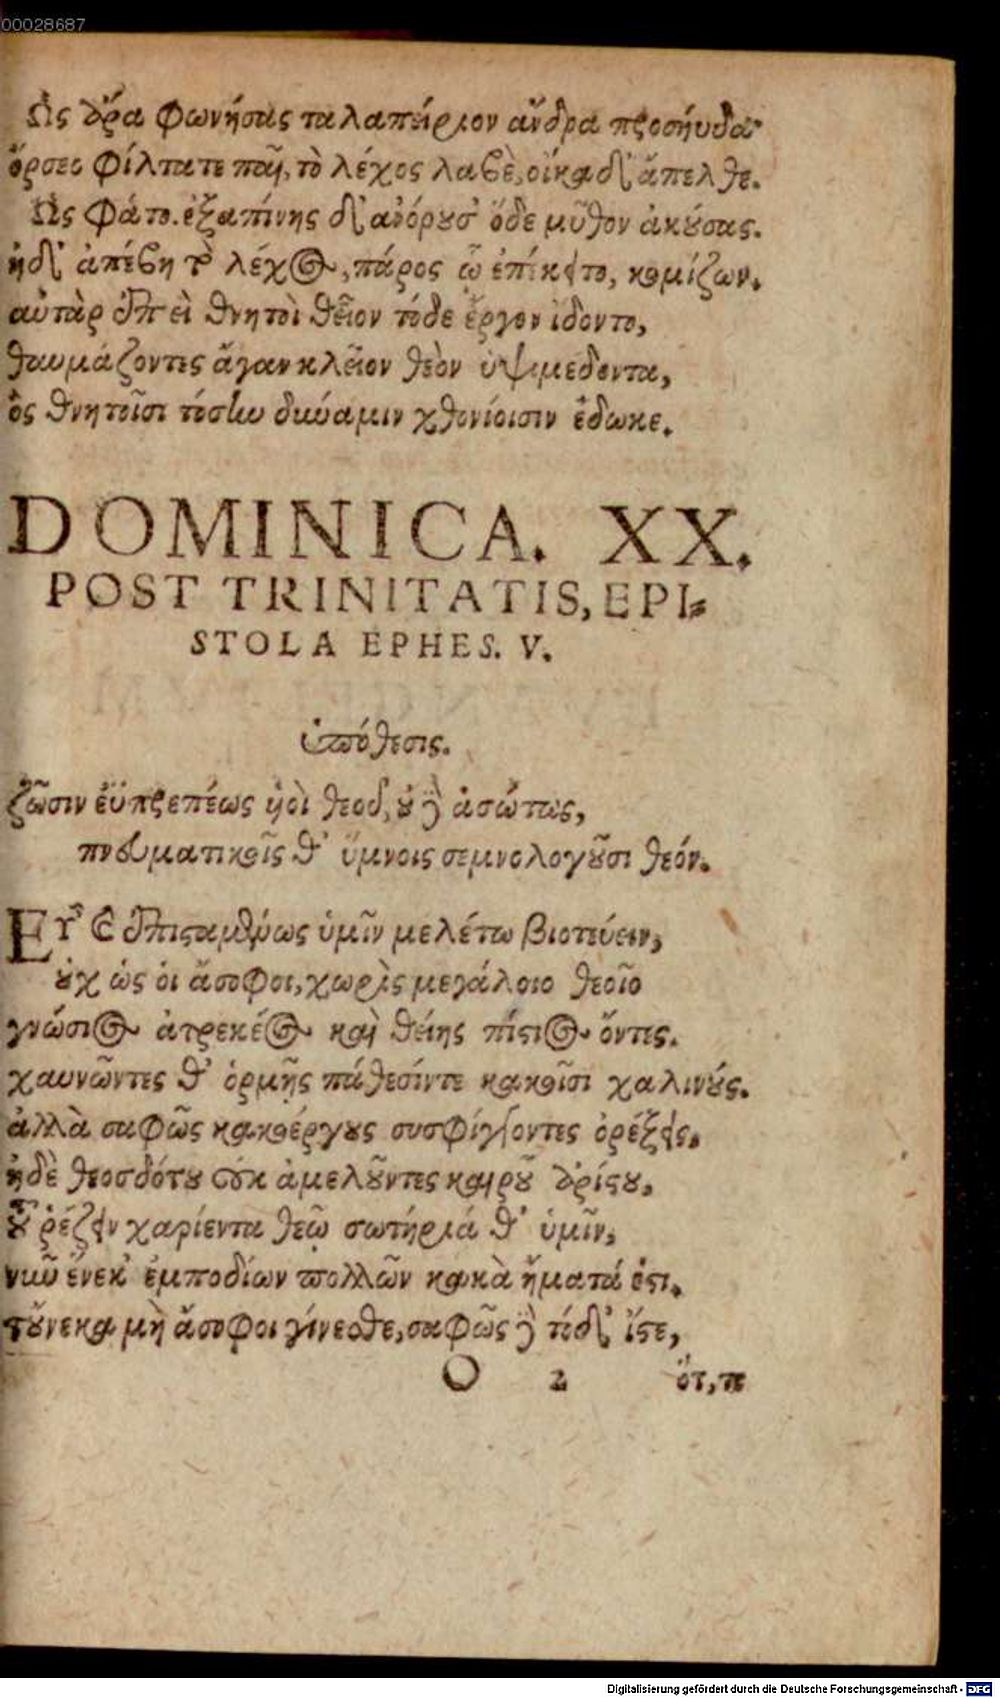 00028687
Ὣς ἄρα φωνήσας ταλαπείριον ἄνδρα προσηύδα·
ὄρσεο φίλτατε παῖ, τὸ λέχος λαβὲ, οἴκαδ' ἄπελθε.
Ὣς φάτο. ἐξαπίνης δ' ἀνόρουσ' ὅδε μῦθον ἀκούσας.
ἠδ' ἀπέβη τὸ λέχος, πάρος ᾧ ἐπέκειτο, κομίζων.
αὐτὰρ ἐπεὶ θνητοὶ θεῖον τόδε ἔργον ἴδοντο,
θαυμάζοντες ἄγαν κλεῖον θεὸν ὑψιμέδοντα,
ὃς θνητοῖσι τόσην δύναμιν χθονίοισιν ἔδωκε.
DOMINICA. XX.
POST TRINITATIS, EPI-
STOLA EPHES. V.
ὑπόθεσις.
ζῶσιν ἐϋπρεπέως υἱοὶ θεοῦ, οὐ δ' ἀσώτως,
πνευματικοῖς θ' ὕμνοις σεμνολογοῦσι θεόν.
Εὖ καὶ ἐπισταμένως ὑμῖν μελέτω βιοτεύειν,
οὐχ ὡς οἱ ἄσοφοι, χωρὶς μεγάλοιο θεοῖο
γνώσιος ἀτρεκέος καὶ θείης πίστιος ὄντες.
χαυνῶντες θ' ὁρμῆς πάθεσίντε κακοῖσι χαλινούς.
ἀλλὰ σαφῶς κακοέργους συσφίγγοντες ὀρέξεις,
ἠδὲ θεοσδότου οὐκ ἀμελοῦντες καιροῦ ἀρίστου,
τοῦ ῥέζειν χαρίεντα θεῷ σωτήριά θ' ὑμῖν,
νῦν ἕνεκ' ἐμποδίων πολλῶν κακὰ ἤματά ἐστι.
τοὔνεκα μὴ ἄσοφοι γίνεσθε, σαφῶς δὲ τόδ' ἴστε,
O 2 ὅτ, π
Digitalisierung gefördert durch die Deutsche Forschungsgemeinschaft - DFG